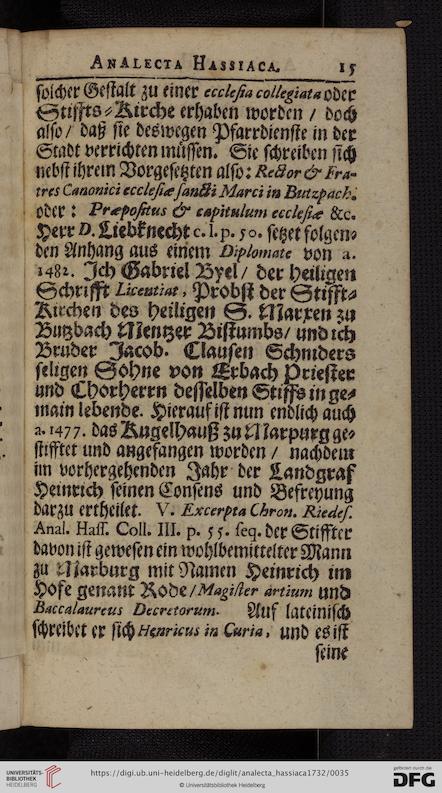 ANALECTA HASSIACA. 15
solcher Gestalt zu einer ecclesia collegiata oder
Stiffts-Kirche erhaben worden / doch
also / daß sie deswegen Pfarrdienste in der
Stadt verrichten müssen. Sie schreiben sich
nebst ihrem Vorgesetzten also: Rector & Fra-
tres Canonici ecclesiæ sancti Marci in Butzpach.
oder: Præpositus & capitulum ecclesiæ &c.
Herr D. Liebknecht c. l. p. 50. setzet folgen-
den Anhang aus einem Diplomate von a.
1482. Ich Gabriel Byel / der heiligen
Schrifft Licentiat, Probst der Stifft-
Kirchen des heiligen S. Marxen zu
Butzbach Mentzer Bistumbs / und ich
Bruder Jacob. Clausen Schniders
seligen Sohne von Erbach Priester
und Chorherrn desselben Stiffs in ge-
main lebende. Hierauf ist nun endlich auch
a. 1477. das Kugelhauß zu Marpurg ge-
stifftet und angefangen worden / nachdem
im vorhergehenden Jahr der Landgraf
Heinrich seinen Consens und Befreyung
darzu ertheilet. V. Excerpta Chron. Riedes.
Anal. Hass. Coll. III. p. 55. seq. der Stiffter
davon ist gewesen ein wohlbemittelter Mann
zu Marburg mit Namen Heinrich im
Hofe genant Rode / Magister artium und
Baccalaureus Decretorum. Auf lateinisch
schreibet er sich Henricus in Curia, und es ist
seine
UNIVERSITÄTS-
BIBLIOTHEK
HEIDELBERG
https://digi.ub.uni-heidelberg.de/diglit/analecta_hassiaca1732/0035
© Universitätsbibliothek Heidelberg
gefördert durch die
DFG